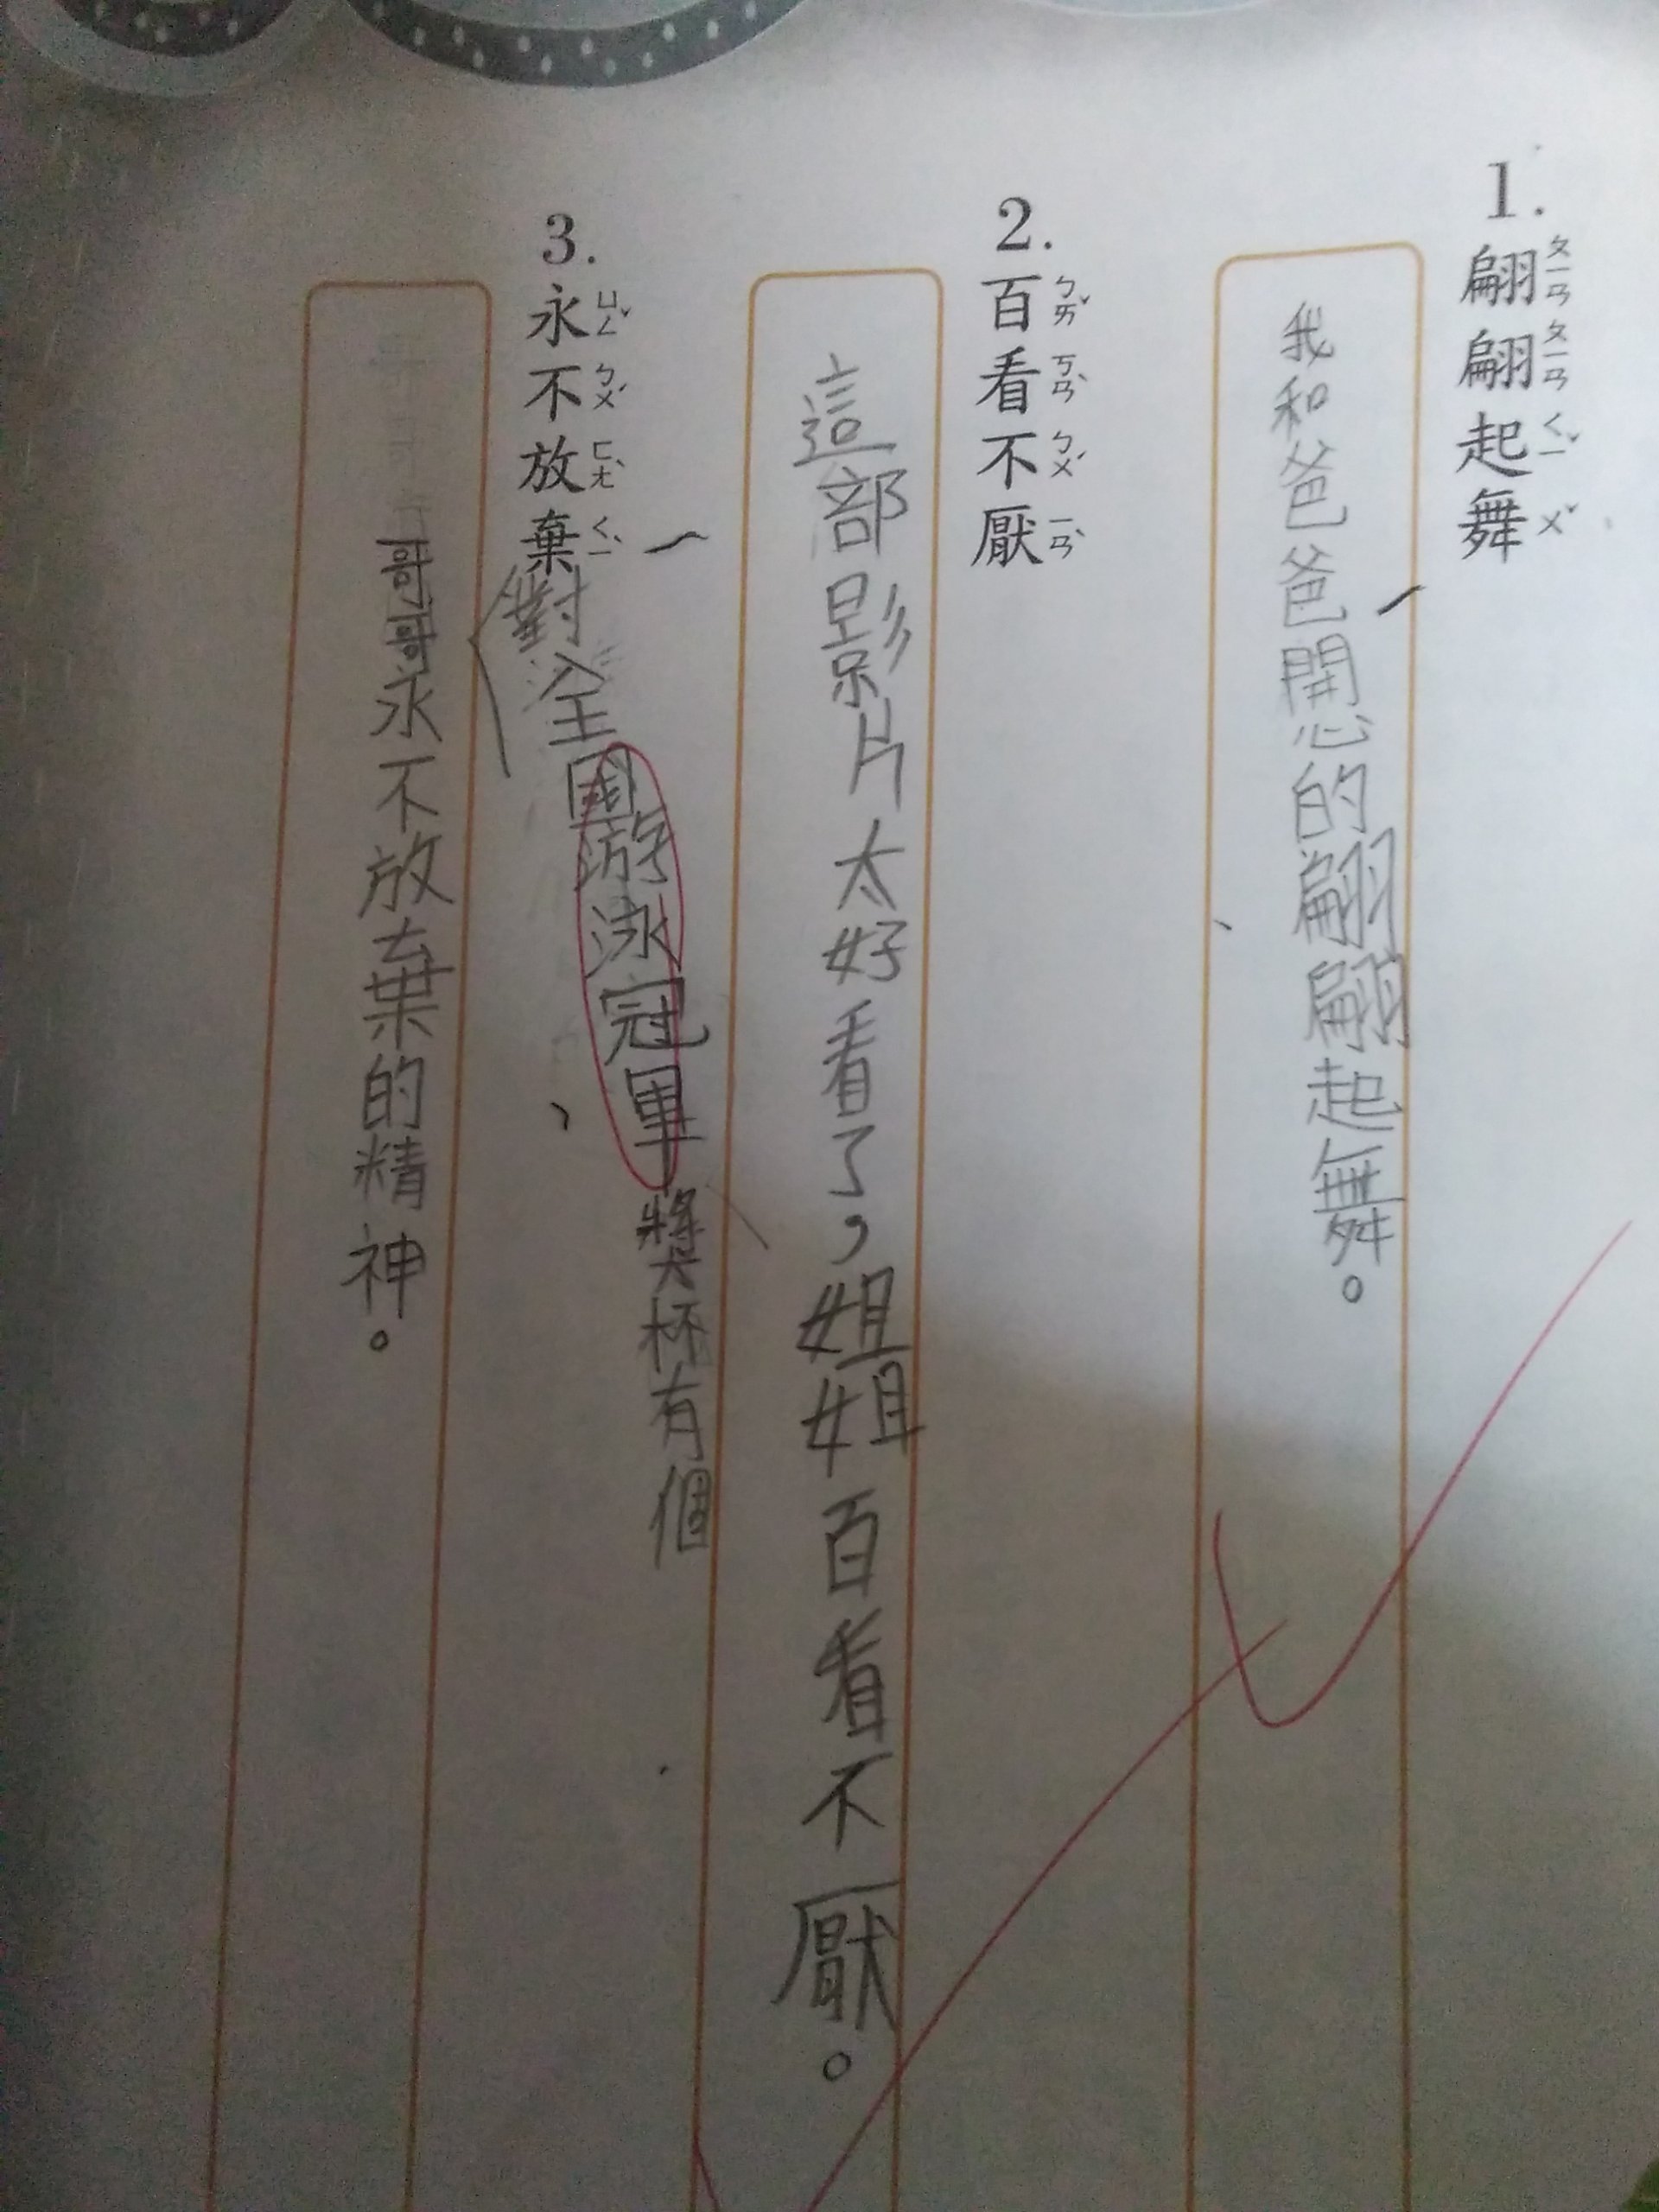 1.翩翩起舞
ㄆㄧㄢ ㄆㄧㄢ ㄑㄧˇ ㄨˇ
我和爸爸開心的翩翩起舞。
2.百看不厭
ㄅㄞˇ ㄎㄢˋ ㄅㄨˊ ㄧㄢˋ
這部影片太好看了，姐姐百看不厭。
3.永不放棄
ㄩㄥˇ ㄅㄨˊ ㄈㄤˋ ㄑㄧˋ
對全國游泳冠軍獎杯有個
哥哥永不放棄的精神。